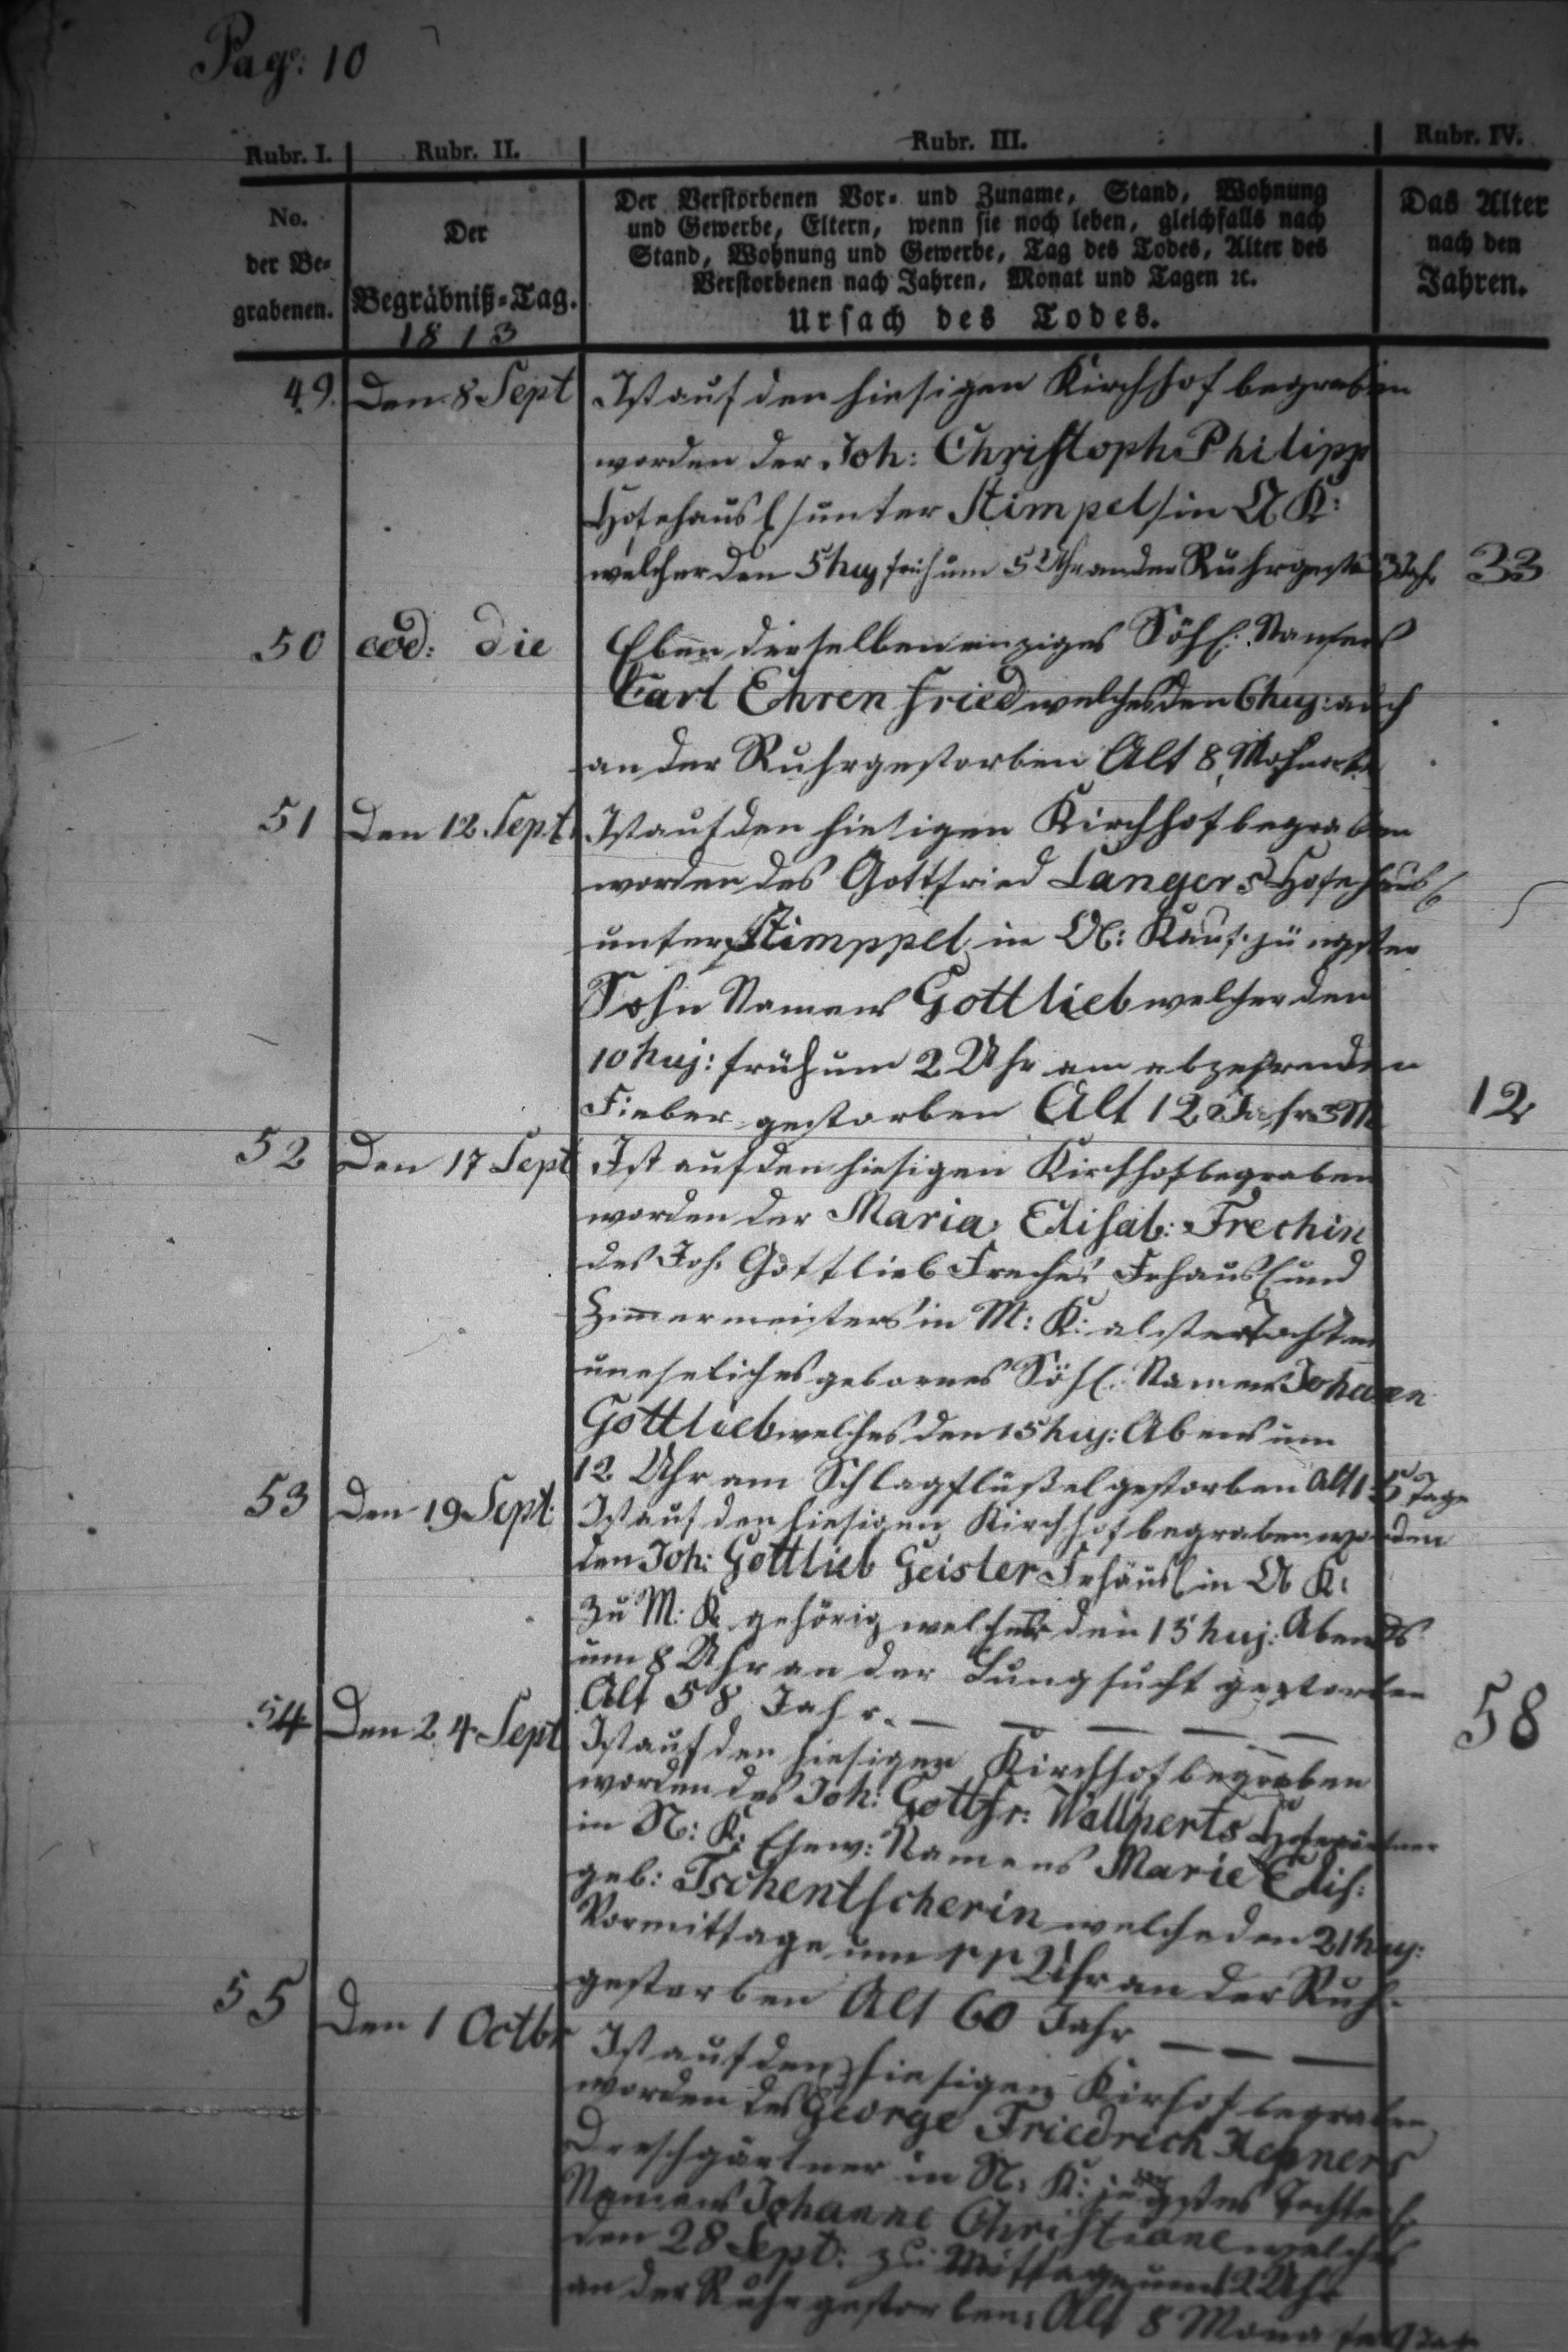 Pag: 10
Rubr. I. Rubr. II. Rubr. III. Rubr. IV.
No. der Be-grabenen.
Der Begräbniß-Tag.
1813
Der Verstorbenen Vor- und Zuname, Stand, Wohnung
und Gewerbe, Eltern, wenn sie noch leben, gleichfalls nach
Stand, Wohnung und Gewerbe, Tag des Todes, Alter des
Verstorbenen nach Jahren, Monat und Tagen ꝛc.
Ursach des Todes.
Das Alter
nach den
Jahren.
49. Den 8 Sept Ist auf den hiesigen Kirchhof begraben
worden der Joh: Christoph Philipp
unter Stimpel in
welcher den 5 huj früh um 5 Uhr an der Ruhr 33
50 eod: die Eben desselben einziges Söhl: Namens
Carl Ehrenfried welches den 6 huj: auch
an der Ruhr gestorben Alt 8
51 Den 12 Sept. Ist auf den hiesigen Kirchhof begraben
worden des Gottfried Langers
unter Stimppel in jüngster
Sohn Namens Gottlieb welcher den
10 huj: früh um 2 Uhr am abzehrenden
Fieber gestorben Alt 12 Jahr 3 M 12
52 Den 17 Sept Ist auf den hiesigen Kirchhof begraben
worden der Maria Elisab: Frechin
des Joh. Gottlieb Freches und
Zimmermeisters in M: K: Tochter
uneheliches gebornes Söhl: Namens Johann
Gottlieb welches den 15 huj: Abends um
12 Uhr am Schlagflüßel gestorben Alt Tage
53 Den 19 Sept. Ist auf den hiesigen Kirchhof begraben worden
den Joh: Gottlieb Geisler in
zu M: K gehörig welcher den 15 huj: Abends
um 8 Uhr an der Lungsucht gestorben
Alt 58 Jahr. — — — — — 58
54 Den 24 Sept Ist auf den hiesigen Kirchhof begraben
worden des Joh: Gottfr: Wallperts Hofegärtner
in N: K: Ehew: Namens Marie Elis:
geb: Tschentscherin welche den 21 huj:
Vormittage um 11 Uhr an der Ruhr
gestorben Alt 60 Jahr — — —
55 Den 1 Octbr Ist auf den hiesigen Kirhof begraben
worden des George Friedrich
Dreschgärtner in N: K: jüngstes
Namens Johanne Christiane welches
den 28 Sept: zu Mittage um 12 Uhr
an der Ruhr gestorben: Alt 8